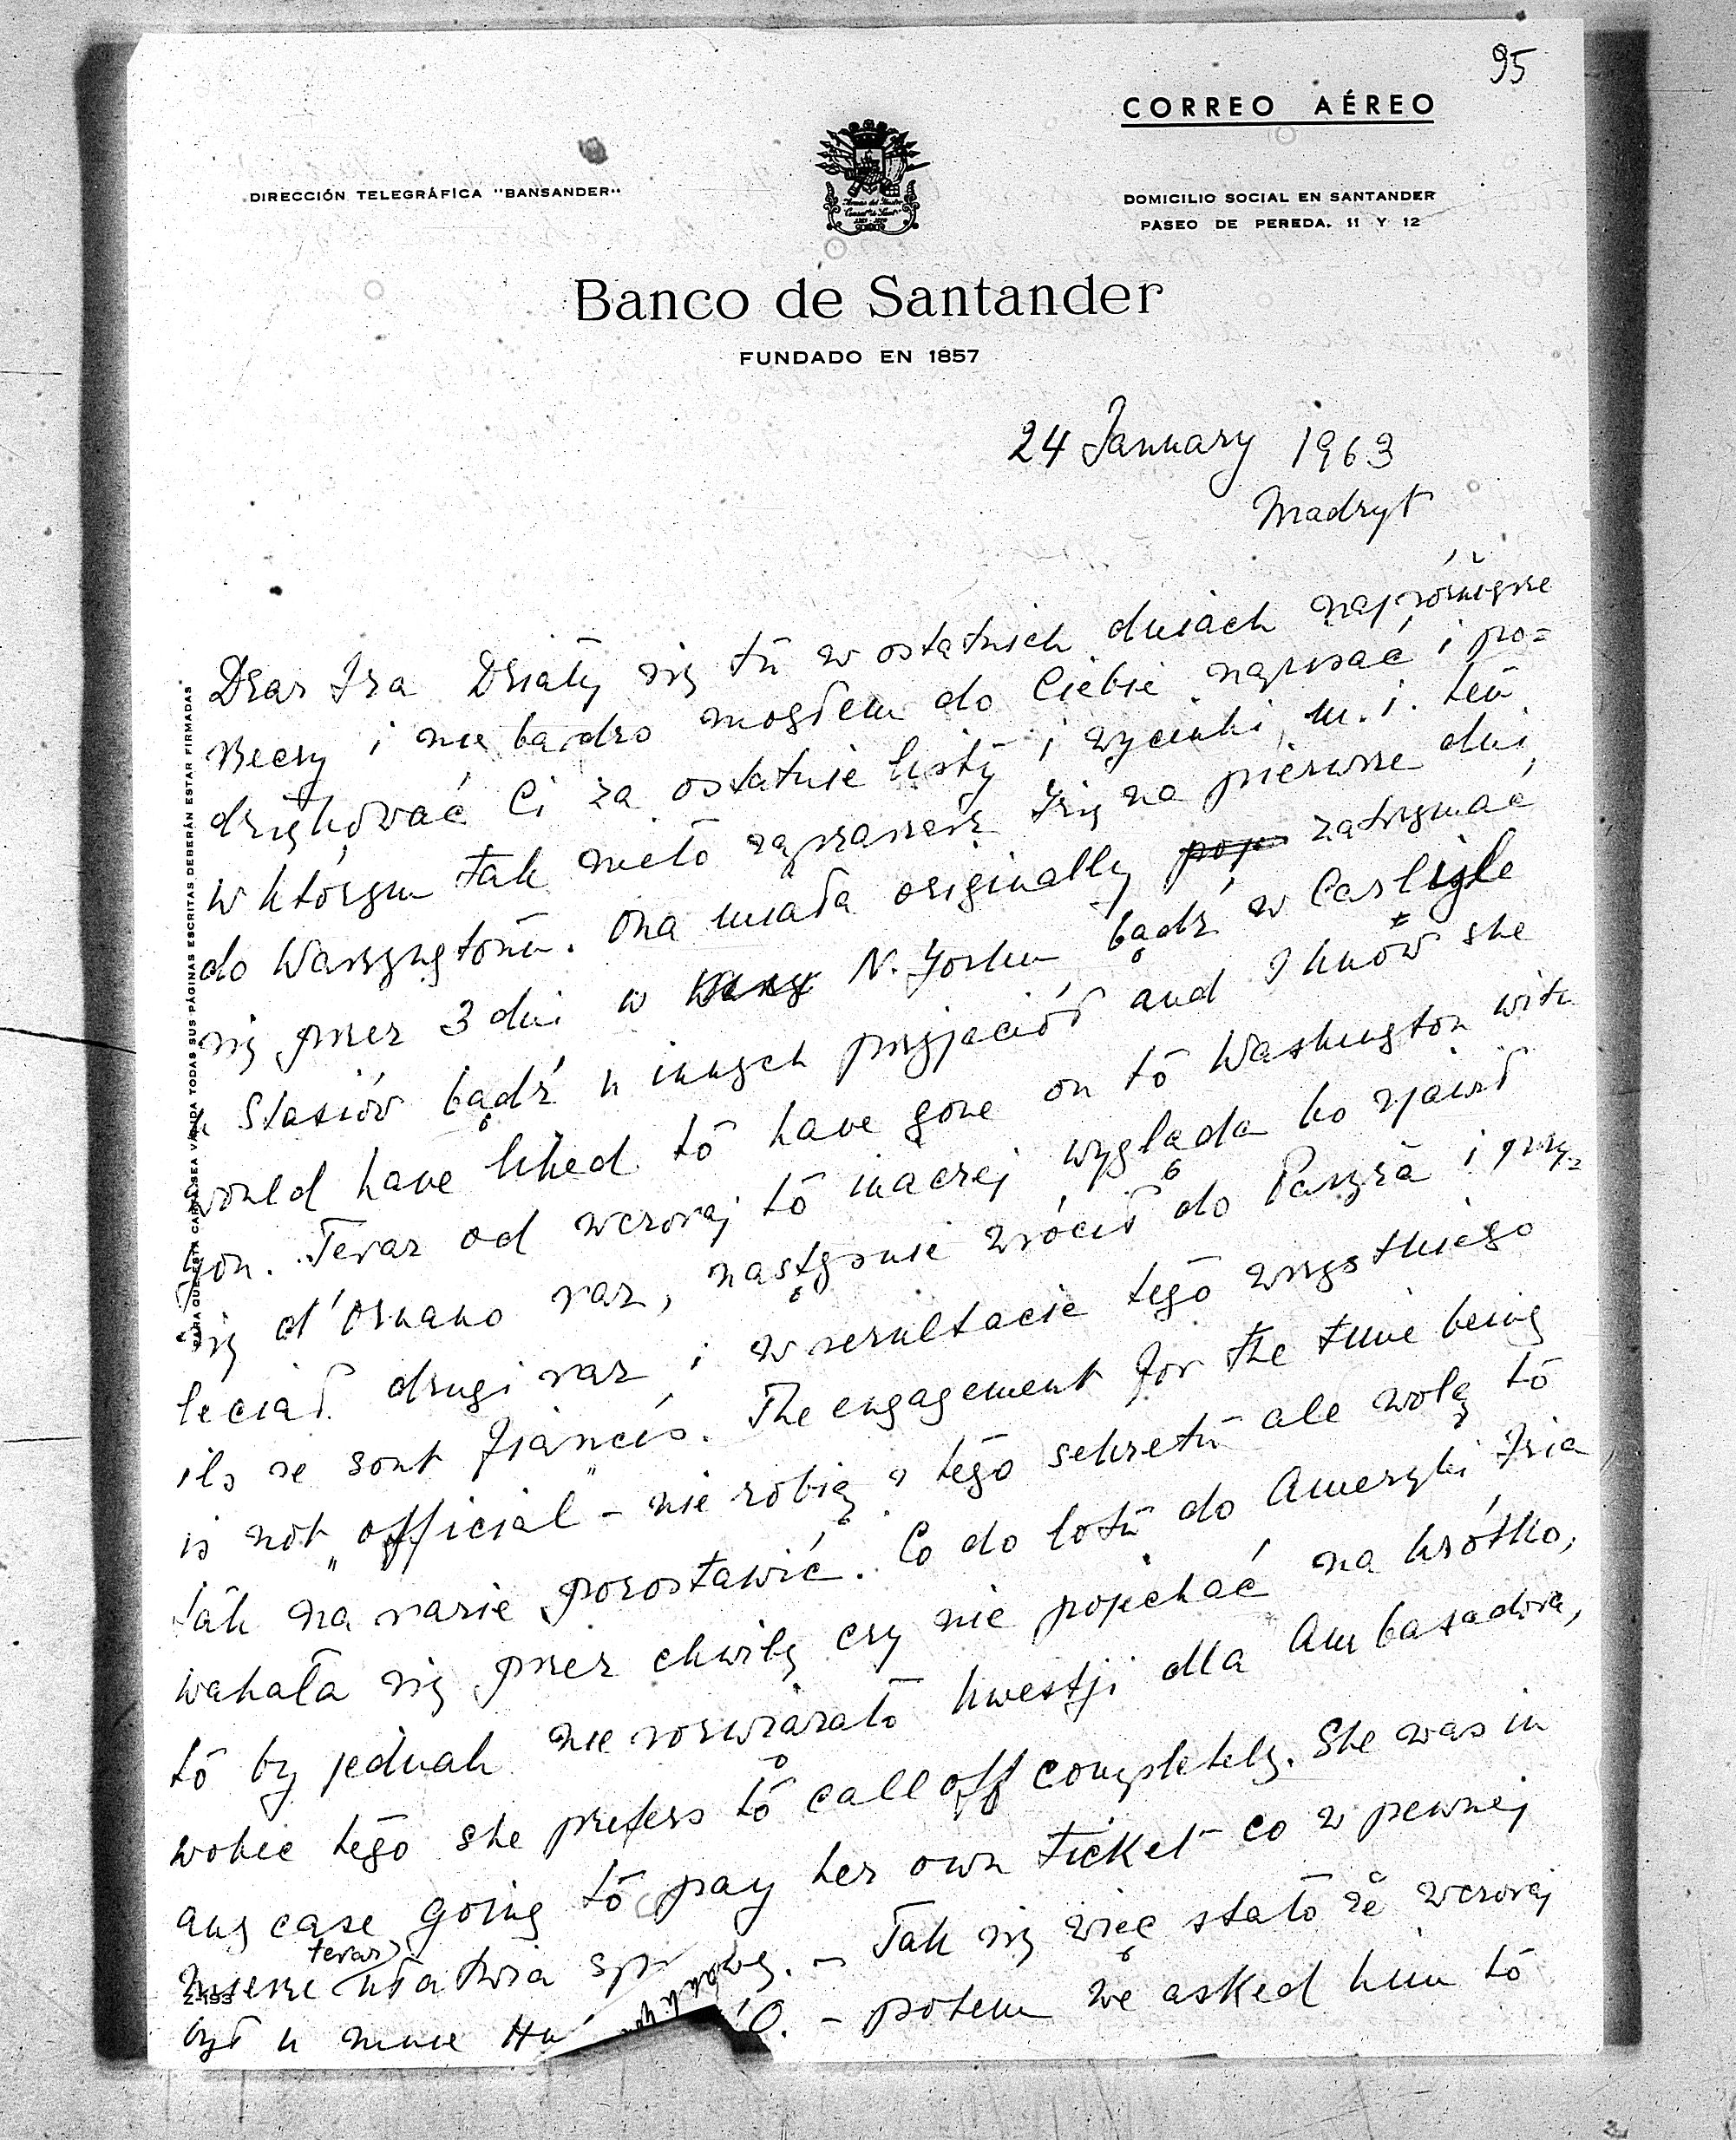 95
CORREO AÉREO
DIRECCIÓN TELEGRÁFICA "BANSANDER"
DOMICILIO SOCIAL EN SANTANDER
PASEO DE PEREDA, 11 Y 12
Banco de Santander
FUNDADO EN 1857
24 January 1963
Madryt
Dear Iza Działy się tu w ostatnich dniach najróżniejsze
rzeczy i nie bardzo mogłem do Ciebie napisać i po=
dziękować Ci za ostatnie listy i wycinki, m. i. ten
w którym tak miło zapraszasz Izię na pierwsze dni
do Waszyngtonu. Ona miała originally zatrzymać
się przez 3 dni w N. Yorku, bądź w Carlisle
u Stasiów bądź u innych przyjaciół and I know she
would have liked to have gone on to Washington with
you. Teraz od wczoraj to inaczej wygląda bo zjawił
się d'Ornano raz, następnie wrócił do Paryża i przy=
leciał drugi raz i w rezultacie tego wszystkiego
ils se sont fiancés. The engagement for the time being
is not "official" - nie robię z tego sekretu ale wolę to
tak na razie pozostawić. Co do lotu do Ameryki Izia
wahała się przez chwilę czy nie pojechać na krótko,
to by jednak nie rozwiązało kwestji dla Ambasadora,
wobec tego she prefers to call off completely. She was in
any case going to pay her own ticket - co w pewnej
mierze teraz ułatwia . - Tak się więc stało że wczoraj
był u mnie O. - potem we asked him to
Z-193
PARA QUE ESTA CARTA SEA VÁLIDA TODAS SUS PÁGINAS ESCRITAS DEBERÁN ESTAR FIRMADAS